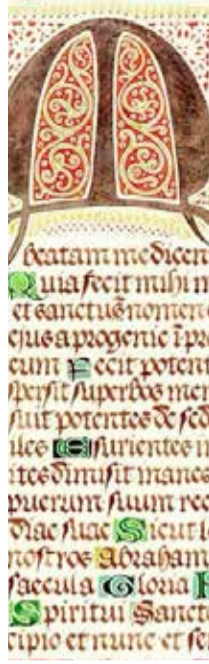 M
beatam me dicen
Quia fecit mihi m
et sanctus nomen
ejus a progenie i pro
eum Fecit potent
spersit superbos men
suit potentes de sed
iles Esurientes
ites dimisit inanes
puerum suum rec
diae suae Sicut l
nostros Abraham
saecula Gloria P
Spiritui Sancto
cipio et nunc et se